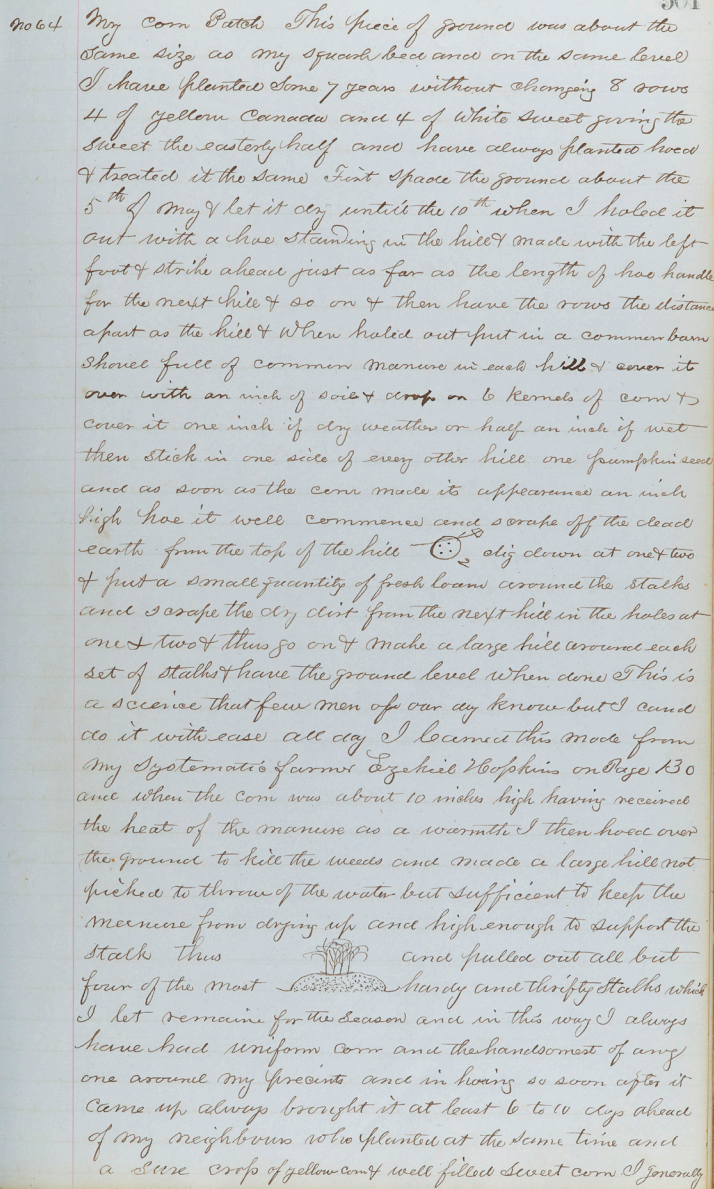 301
No 64 My corn Patch This piece of ground was about the
same size as my squash bed and on the same level
I have planted some 7 years without changing 8 rows
4 of yellow Canada and 4 of white sweet giving the
sweet the easterly half and have always planted hoed
& treated it the same First spade the ground about the
5th of May & let it dry untill the 10th when I holed it
out with a hoe standing in the hill & made with the left
foot & strike ahead just as far as the length of hoe handle
for the next hill & so on & then have the rows the distance
apart as the hill & When holed out put in a common barn
shovel full of common manure in each hill & cover it
over with an inch of soil & drop on 6 kernels of corn &
cover it one inch if dry weather or half an inch if wet
then stick in one side of every other hill one pumpkin seed
and as soon as the corn made its appearance an inch
high hoe it well commence and scrape off the dead
earth from the top of the hill 2 dig down at one & two
& put a small quantity of fresh loam around the stalks
and scrape the dry dirt from the next hill in the holes at
one & two & thus go on & make a large hill around each
set of stalks & have the ground level when done This is
a science that few men of our day know but I can
do it with ease all day I learned this mode from
My Systematic farmer Ezekiel Hopkins on Page 130
and when the corn was about 10 inches high having received
the heat of the manure as a warmth I then hoed over
the ground to kill the weeds and made a large hill not
picked to throw of the water but sufficient to keep the
manure from drying up and high enough to support the
stalk thus and pulled out all but
four of the most hardy and thrifty stalks which
I let remaine for the season and in this way I always
have had uniform corn and the handsomest of any
one around my precints and in hoing so soon after it
came up always brought it at least 6 to 10 days ahead
of my neighbours who planted at the same time and
a sure crop of yellow corn & well filled sweet corn I generally